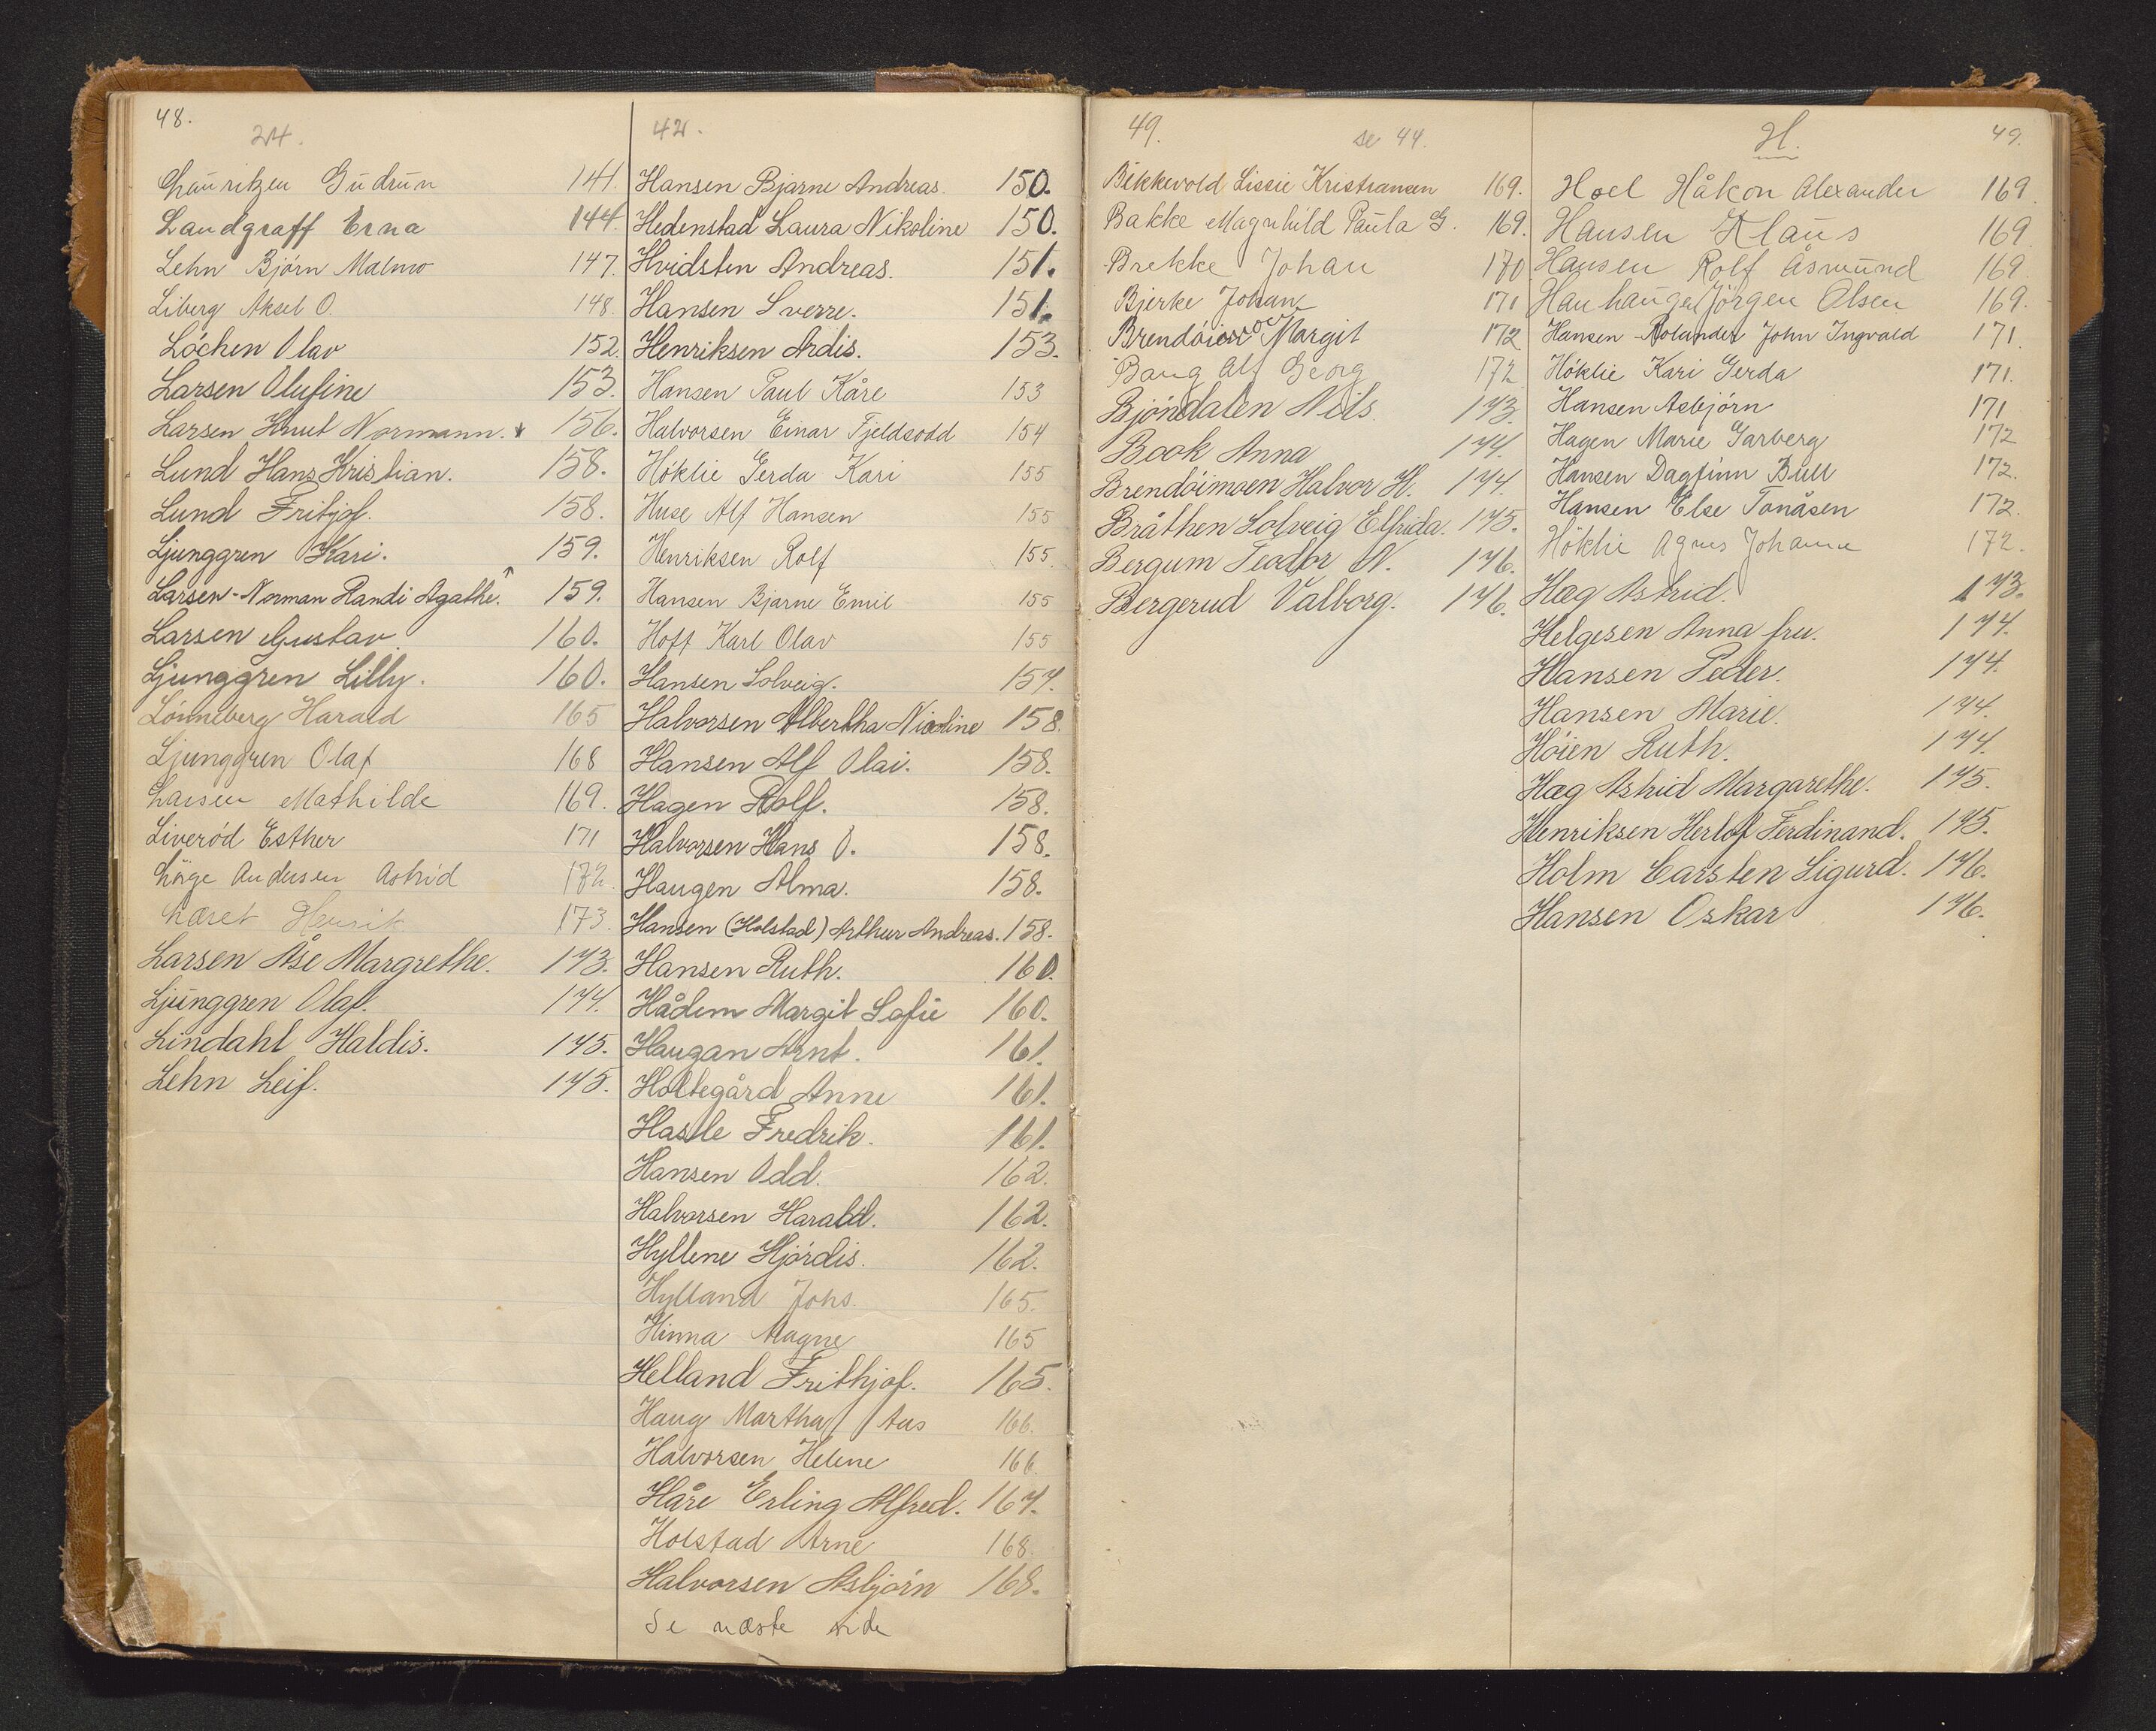 48.
24.
Lauritzen Gudrun 141.
Landgraff Erna 144.
Lehn Bjørn Malmo 147.
Liberg Aksel O. 148.
Löchen Olav 152.
Larsen Olufine 153.
Larsen Knut Normann. 156.
Lund Hans Kristian. 158.
Lund Fritjof. 158.
Ljunggren Kari. 159.
Larsen-Norman Randi Agathe. 159.
Larsen Gustav 160.
Ljunggren Lilly. 160.
Lönneberg Harald 165
Ljunggren Olaf 168
Larsen Mathilde 169.
Liveröd Esther 171
Andersen Astrid 172.
Henrik 173.
Larsen Åse Margrethe. 173.
Ljunggren Olaf. 174.
Lindahl Haldis. 175.
Lehn Leif. 175.
42.
Hansen Bjarne Andreas. 150.
Hedenstad Laura Nikoline 150.
Hvidsten Andreas. 151.
Hansen Sverre. 151.
Henriksen Ardis. 153.
Hansen Paul Kåre 153
Halvorsen Einar Fjeldsodd 154
Höklie Gerda Kari 155
Huse Alf Hansen 155
Henriksen Rolf 155.
Hansen Bjarne Emil 155
Hoff Karl Olav 155
Hansen Solveig. 157.
Halvorsen Albertha Nicoline 158.
Hansen Alf Olai. 158.
Hagen Rolf. 158.
Halvorsen Hans O. 158.
Haugen Alma. 158.
Hansen (Holstad) Arthur Andreas. 158.
Hansen Ruth. 160.
Hådem Margit Sofie 160.
Haugan Arnt. 161.
Holtegård Anne 161.
Hasle Fredrik. 161.
Hansen Odd. 162.
Halvorsen Harald. 162.
Hyllene Hjördis. 162.
Hylland Johs. 165.
Hinna Magne 165
Helland Frithjof. 165.
Haug Martha Aas 166.
Halvorsen Helene 166.
Håre Erling Alfred. 167.
Holstad Arne 168.
Halvorsen Asbjørn 168.
Se næste side
49.
se 44.
Bekkevold Lissie Kristiansen 169.
Bakke Magnhild Paula G. 169.
Brekke Johan 170
Bjerke Johan 171
Brendöimoen Margit 172
Bang Alf Georg 172
Bjöndalen Nils. 173.
Book Anna 174.
Brendöimoen Halvor H. 174.
Bråthen Solveig Elfrida. 175.
Bergum Teodor N. 176.
Bergerud Valborg. 176.
H.
49.
Hoel Håkon Alexander 169
Hansen Klaus 169
Hansen Rolf Åsmund 169
Hanhaugen Jörgen Olsen 169.
Hansen-Rolandet John Ingvald 171.
Höklie Kari Gerda 171.
Hansen Asbjörn 171
Hagen Marie Garberg 172
Hansen Dagfinn Bull 172.
Hansen Else Tonåsen 172.
Höklie Agnes Johanne 172.
Hæg Astrid. 173.
Helgesen Anna fru. 174.
Hansen Peder. 174.
Hansen Marie. 174.
Höien Ruth. 174.
Hæg Astrid Margarethe. 175.
Henriksen Herlof Ferdinand. 175.
Holm Carsten Sigurd. 176.
Hansen Oskar 176.